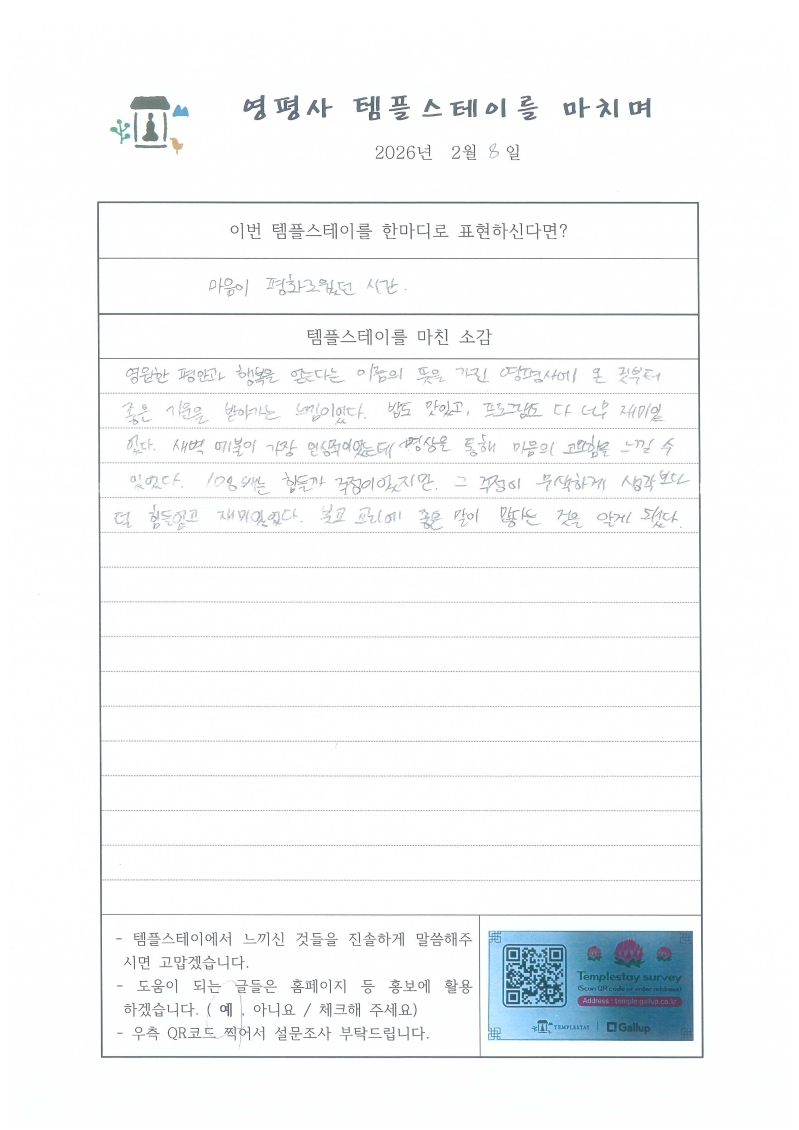 영평사 템플스테이를 마치며
2026년 2월 8일
이번 템플스테이를 한마디로 표현하신다면?
마음이 평화로웠던 시간.
템플스테이를 마친 소감
영원한 평안과 행복을 얻는다는 이름의 뜻을 가진 영평사에 온 것부터
좋은 기운을 받아가는 느낌이었다. 밥도 맛있고, 프로그램도 다 너무 재미있
었다. 새벽 예불이 가장 인상적이었는데 명상을 통해 마음의 고요함을 느낄 수
있었다. 108배는 힘들까 걱정이었지만, 그 걱정이 무색하게 생각보다
덜 힘들었고 재미있었다. 불교 교리에 좋은 말이 많다는 것을 알게 됐다.
- 템플스테이에서 느끼신 것들을 진솔하게 말씀해주
시면 고맙겠습니다.
- 도움이 되는 글들은 홈페이지 등 홍보에 활용
하겠습니다. ( 예 . 아니요 / 체크해 주세요)
- 우측 QR코드 찍어서 설문조사 부탁드립니다.
Templestay survey
(Scan QR code or enter address)
Address : temple.gallup.co.kr
TEMPLESTAY
Gallup